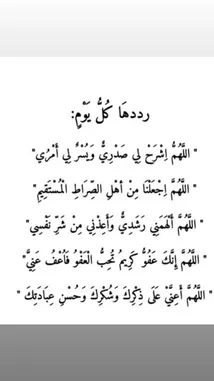 رددها كُلُّ يَوْمٍ:
" اللَّهُمَّ اِشْرَحْ لِي صَدْرِيٌّ وَيُسْرٌ لِي أَمْرُي "
" اللَّهُمَّ اِجْعَلْنَا مِنْ أهْلِ الصِّرَاطِ الْمُسْتَقِيمِ "
" اللَّهُمَّ أَلْهَمَنِي رَشَدِيٌّ وَأَعِذْنِي مِنْ شَرِّ نَفْسِي "
" اللَّهُمَّ إِنَّكَ عَفُوٌّ كَرِيمٌ تُحِبُّ الْعَفْوَ فَاُعْفُ عَنِيَّ "
" اللَّهُمَّ أَعِنِّيْ عَلَى ذِكْرِكَ وَشُكْرِكَ وَحُسْنِ عِبَادَتِكَ "